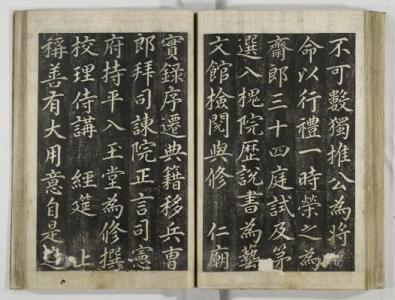 不可數獨推公為將
命以行禮一時榮之為
齋郎三十四庭試及第
選入槐院歷說書為藝
文館檢閱與修 仁廟
實錄序遷典籍移兵曹
郎拜司諫院正言司憲
府持平入玉堂為修撰
校理侍講 經筵 上
稱善有大用意自是